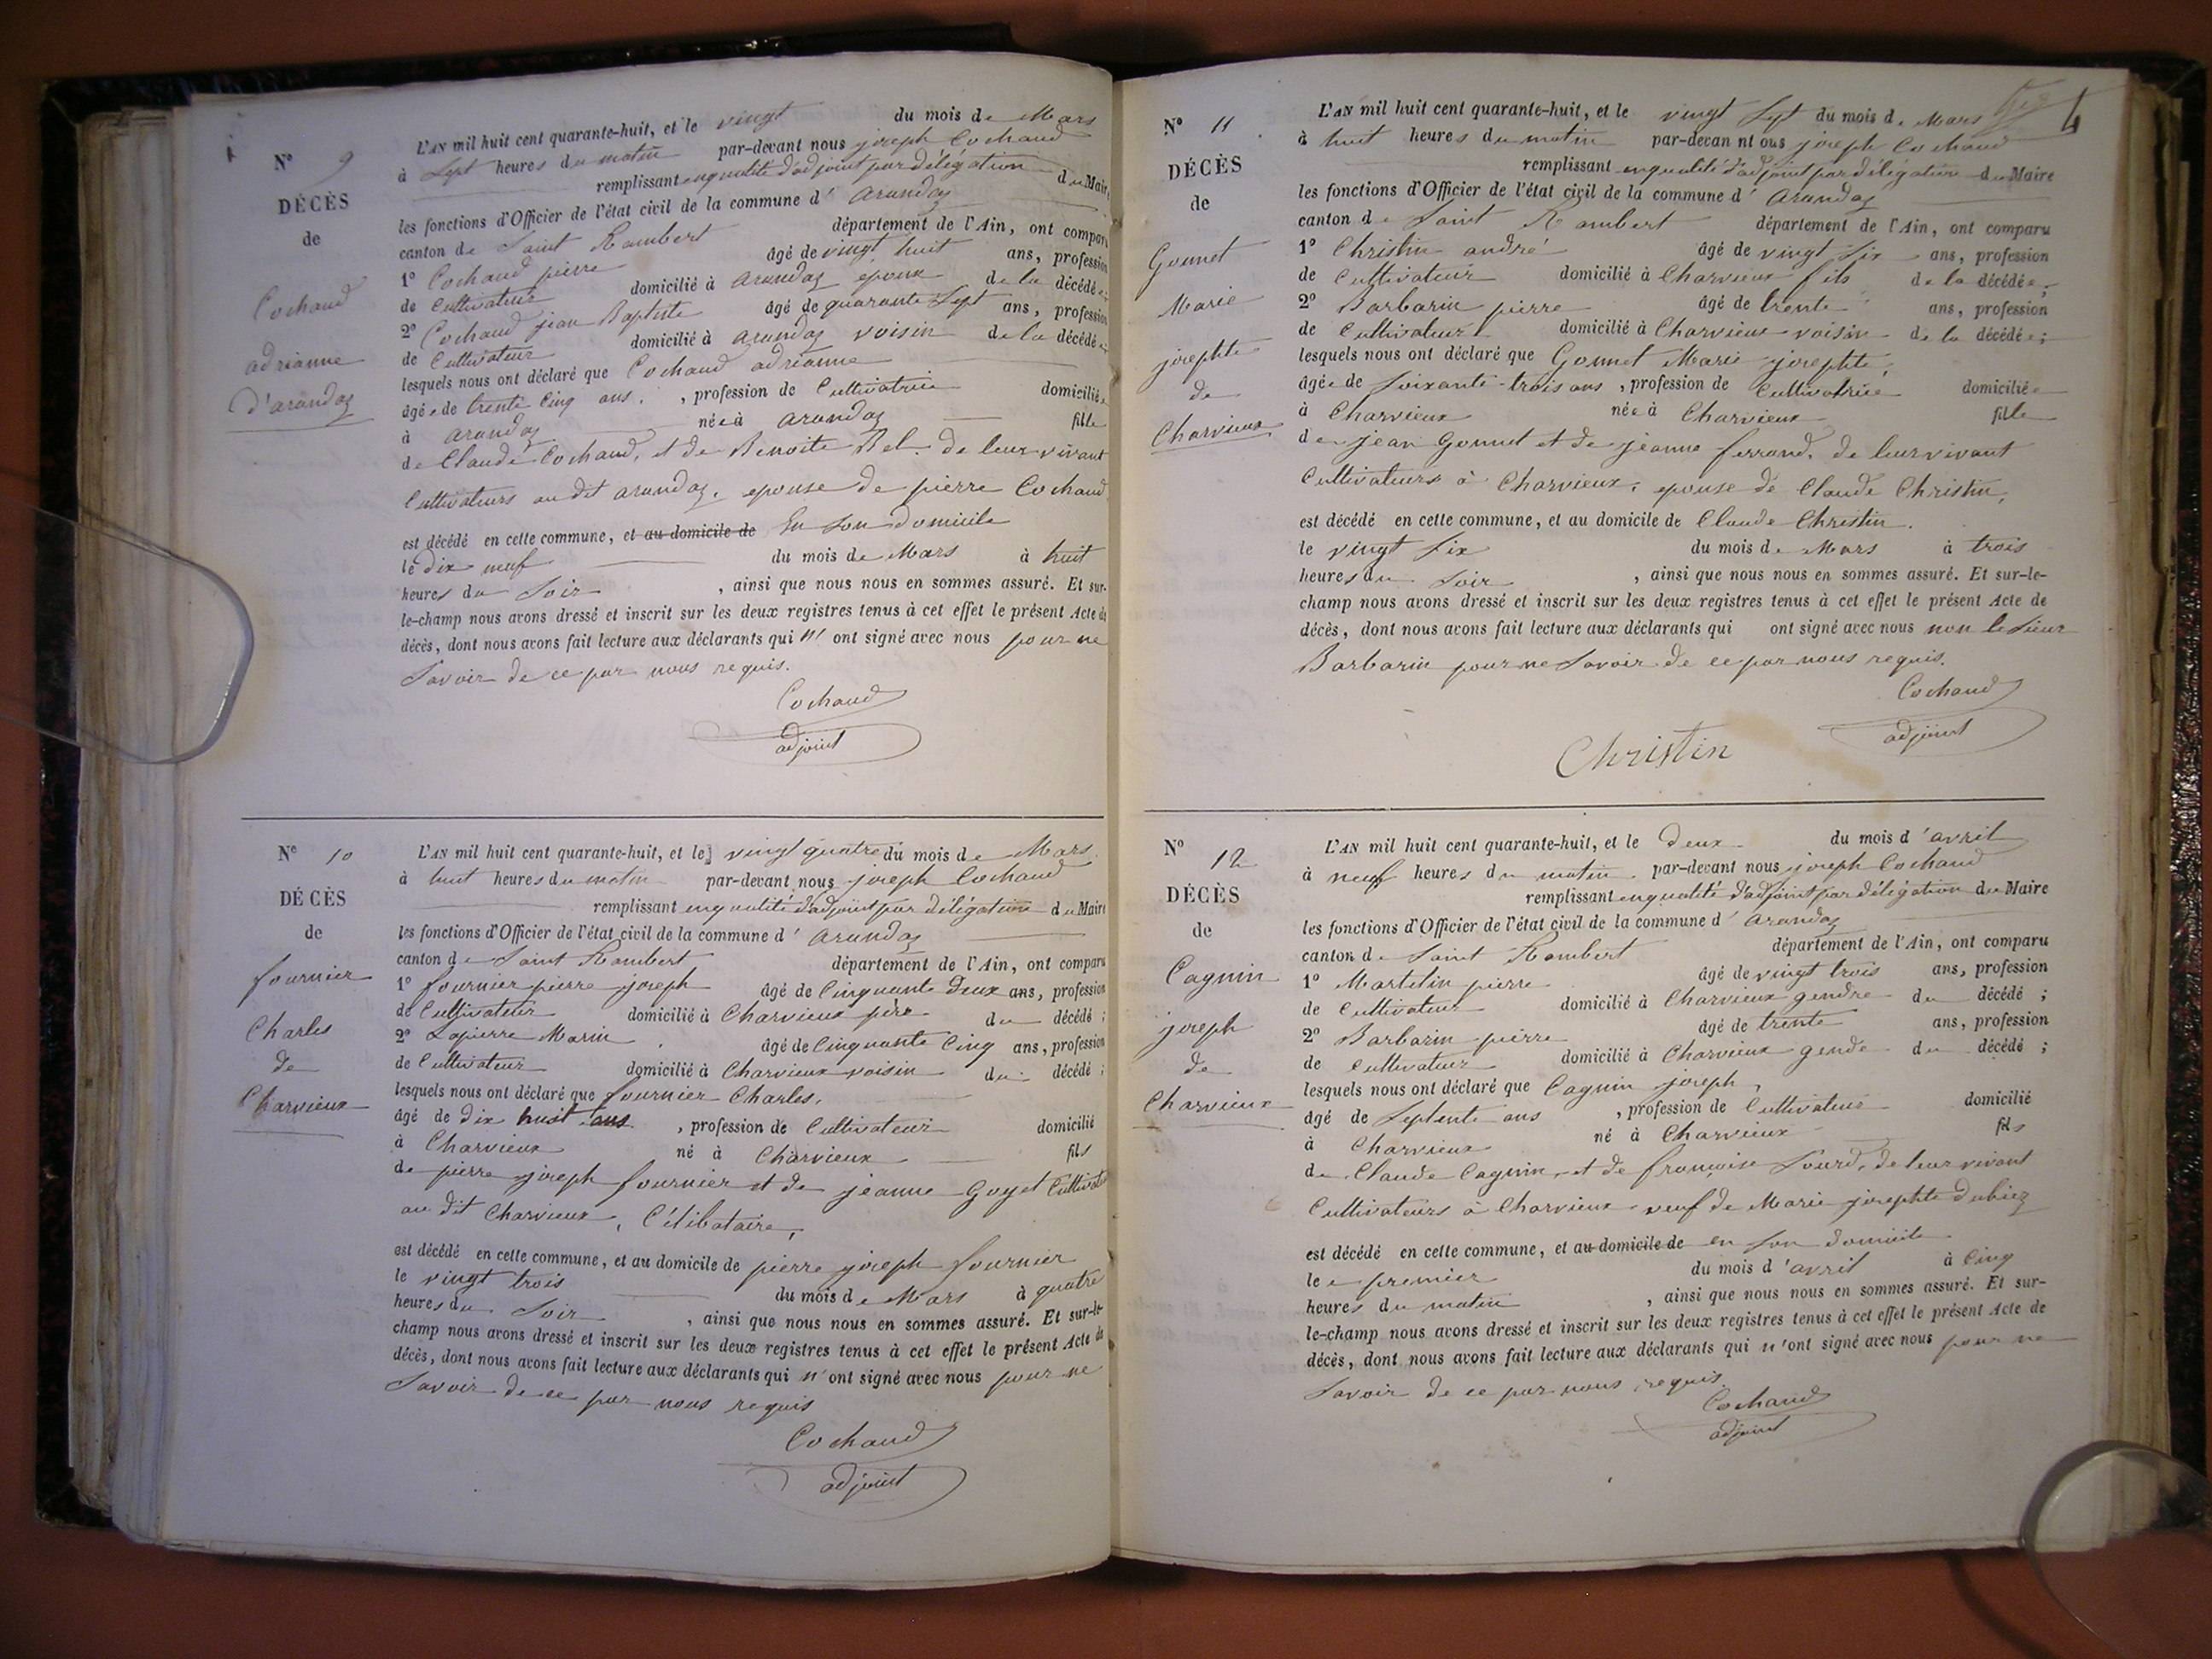 N° 9
DÉCÈS
de
Cochaud
adrianne
d'arandaz
L'AN mil huit cent quarante-huit, et le vingt du mois de Mars
à Sept heures du matin par-devant nous joseph Cochaud
remplissant en qualité d'adjoint par délégation du Maire
les fonctions d'Officier de l'état civil de la commune d'arandaz
canton de Saint Rambert département de l'Ain, ont comparu
1° Cochaud pierre âgé de vingt huit ans, profession
de Cultivateur domicilié à arandaz epoux de la décédée;
2° Cochaud jean Baptiste âgé de quarante Sept ans, profession
de Cultivateur domicilié à arandaz voisin de la décédée;
lesquels nous ont déclaré que Cochaud adrianne
âgée de trente Cinq ans, profession de Cultivatrice domiciliée
à arandaz née à arandaz fille
de Claude Cochaud, et de Benoite Bel. de leur vivant
Cultivateurs au dit arandaz, epouse de pierre Cochaud
est décédé en cette commune, et au domicile de En Son domicile
le dix neuf du mois de Mars à huit
heures du Soir, ainsi que nous nous en sommes assuré. Et sur-
le-champ nous avons dressé et inscrit sur les deux registres tenus à cet effet le présent Acte de
décès, dont nous avons fait lecture aux déclarants qui n'ont signé avec nous pour ne
Savoir de ce par nous requis.
Cochaud
adjoint
N° 10
DÉCÈS
de
fournier
Charles
de
Charvieux
L'AN mil huit cent quarante-huit, et le vingt quatre du mois de Mars
à huit heures du matin par-devant nous joseph Cochaud
remplissant en qualité d'adjoint par délégation du Maire
les fonctions d'Officier de l'état civil de la commune d'arandaz
canton de Saint Rambert département de l'Ain, ont comparu
1° fournier pierre joseph âgé de Cinquante deux ans, profession
de Cultivateur domicilié à Charvieux père du décédé;
2° Lapierre Marin âgé de Cinquante Cinq ans, profession
de Cultivateur domicilié à Charvieux voisin du décédé;
lesquels nous ont déclaré que fournier Charles,
âgé de dix huit ans, profession de Cultivateur domicilié
à Charvieux né à Charvieux fils
de pierre joseph fournier et de jeanne Goyet Cultivateurs
au dit Charvieux, Célibataire,
est décédé en cette commune, et au domicile de pierre joseph fournier
le vingt trois du mois de Mars à quatre
heures du Soir, ainsi que nous nous en sommes assuré. Et sur-le-
champ nous avons dressé et inscrit sur les deux registres tenus à cet effet le présent Acte de
décès, dont nous avons fait lecture aux déclarants qui n'ont signé avec nous pour ne
Savoir de ce par nous requis
Cochaud
adjoint
N° 11
DÉCÈS
de
Gonnet
Marie
josephte
de
Charvieux
L'AN mil huit cent quarante-huit, et le vingt Sept du mois de Mars
à huit heures du matin par-devan nt ous joseph Cochaud
remplissant en qualité d'adjoint par délégation du Maire
les fonctions d'Officier de l'état civil de la commune d'arandaz
canton de Saint Rambert département de l'Ain, ont comparu
1° Christin andré âgé de vingt Six ans, profession
de Cultivateur domicilié à Charvieux fils de la décédée;
2° Barbarin pierre âgé de trente ans, profession
de Cultivateur domicilié à Charvieux voisin de la décédée;
lesquels nous ont déclaré que Gonnet Marie josephte,
âgée de Soixante-trois ans, profession de Cultivatrice domiciliée
à Charvieux née à Charvieux fille
de jean Gonnet et de jeanne ferrand, de leur vivant
Cultivateurs à Charvieux, epouse de Claude Christin,
est décédé en cette commune, et au domicile de Claude Christin.
le vingt Six du mois de Mars à trois
heures du Soir, ainsi que nous nous en sommes assuré. Et sur-le-
champ nous avons dressé et inscrit sur les deux registres tenus à cet effet le présent Acte de
décès, dont nous avons fait lecture aux déclarants qui ont signé avec nous non le Sieur
Barbarin pour ne Savoir de ce par nous requis.
Cochaud
adjoint
Christin
N° 12
DÉCÈS
de
Cagnin
joseph
de
Charvieux
L'AN mil huit cent quarante-huit, et le deux du mois d'avril
à neuf heures du matin par-devant nous joseph Cochaud
remplissant en qualité d'adjoint par délégation du Maire
les fonctions d'Officier de l'état civil de la commune d'arandaz
canton de Saint Rambert département de l'Ain, ont comparu
1° Martelin pierre âgé de vingt trois ans, profession
de Cultivateur domicilié à Charvieux gendre du décédé;
2° Barbarin pierre âgé de trente ans, profession
de Cultivateur domicilié à Charvieux gende du décédé;
lesquels nous ont déclaré que Cagnin joseph,
âgé de Septente ans, profession de Cultivateur domicilié
à Charvieux né à Charvieux fils
de Claude Cagnin, et de françoise Sourd, de leur vivant
Cultivateurs à Charvieux veuf de Marie josephte dubiez
est décédé en cette commune, et au domicile de en Son domicile
le premier du mois d'avril à Cinq
heures du matin, ainsi que nous nous en sommes assuré. Et sur-
le-champ nous avons dressé et inscrit sur les deux registres tenus à cet effet le présent Acte de
décès, dont nous avons fait lecture aux déclarants qui n'ont signé avec nous pour ne
Savoir de ce par nous requis.
Cochaud
adjoint